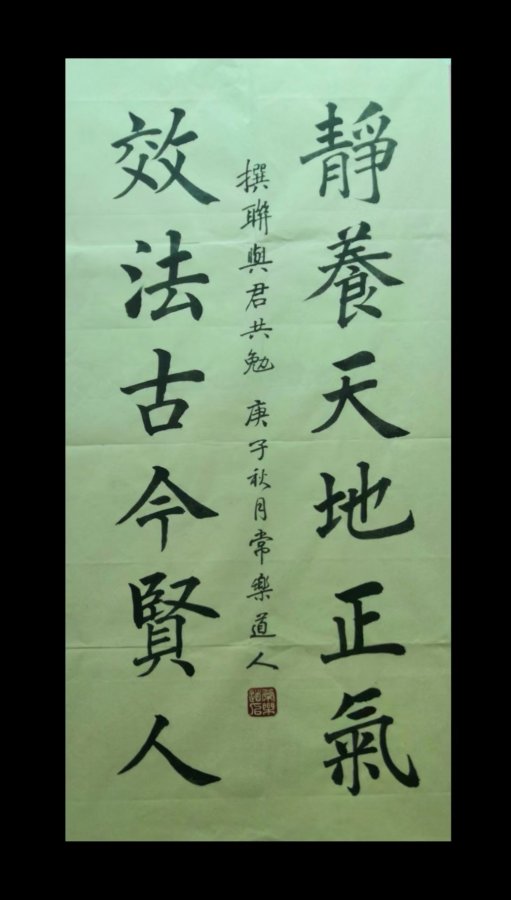 靜養天地正氣
撰聯與君共勉 庚子秋月常樂道人
效法古今賢人